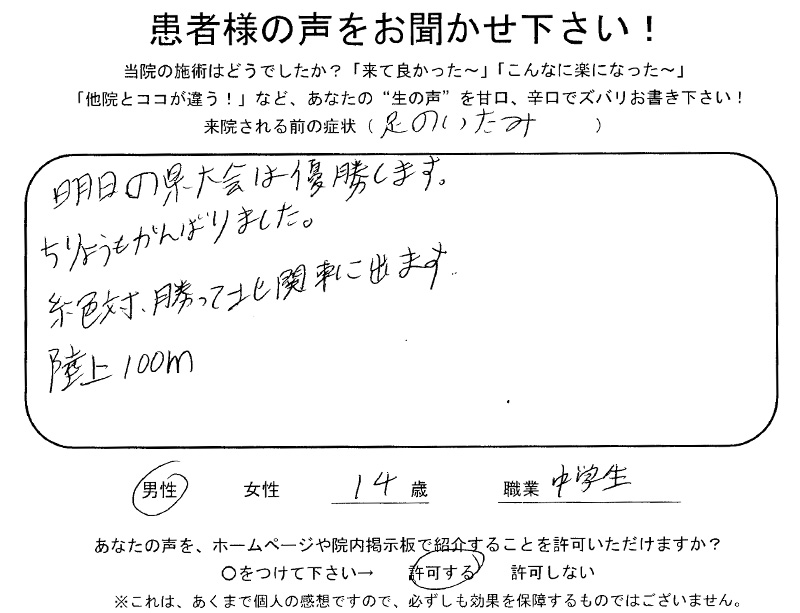 患者様の声をお聞かせ下さい！
当院の施術はどうでしたか？「来て良かった～」「こんなに楽になった～」
「他院とココが違う！」など、あなたの“生の声”を甘口、辛口でズバリお書き下さい！
来院される前の症状（ 足のいたみ ）
明日の県大会は優勝します。
ちりょうもがんばりました。
絶対、勝って北関東に出ます。
陸上100m
男性 女性 14歳 職業 中学生
あなたの声を、ホームページや院内掲示板で紹介することを許可いただけますか？
○をつけて下さい→ 許可する 許可しない
※これは、あくまで個人の感想ですので、必ずしも効果を保障するものではございません。